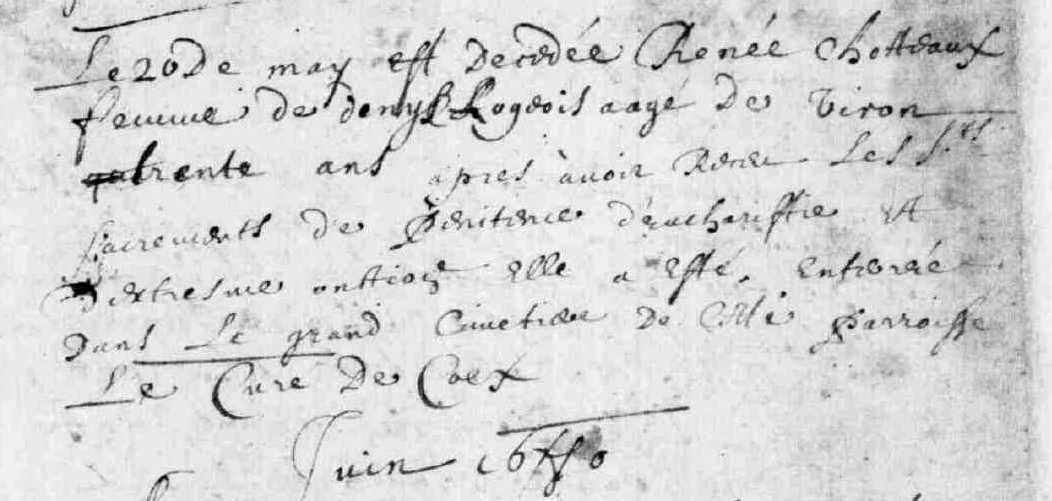 Le 20 De may est Decedée Renée Chotteaux
femme de denys Logeois aagé De viron
trente ans apres avoir Receu Les S.ts
sacrements de Penitence d'eucharistie et
D'extresme onttion elle a esté enterreé
Dans Le grand Cimetiere De Cette parroisse
Le Curé De Coex
Juin